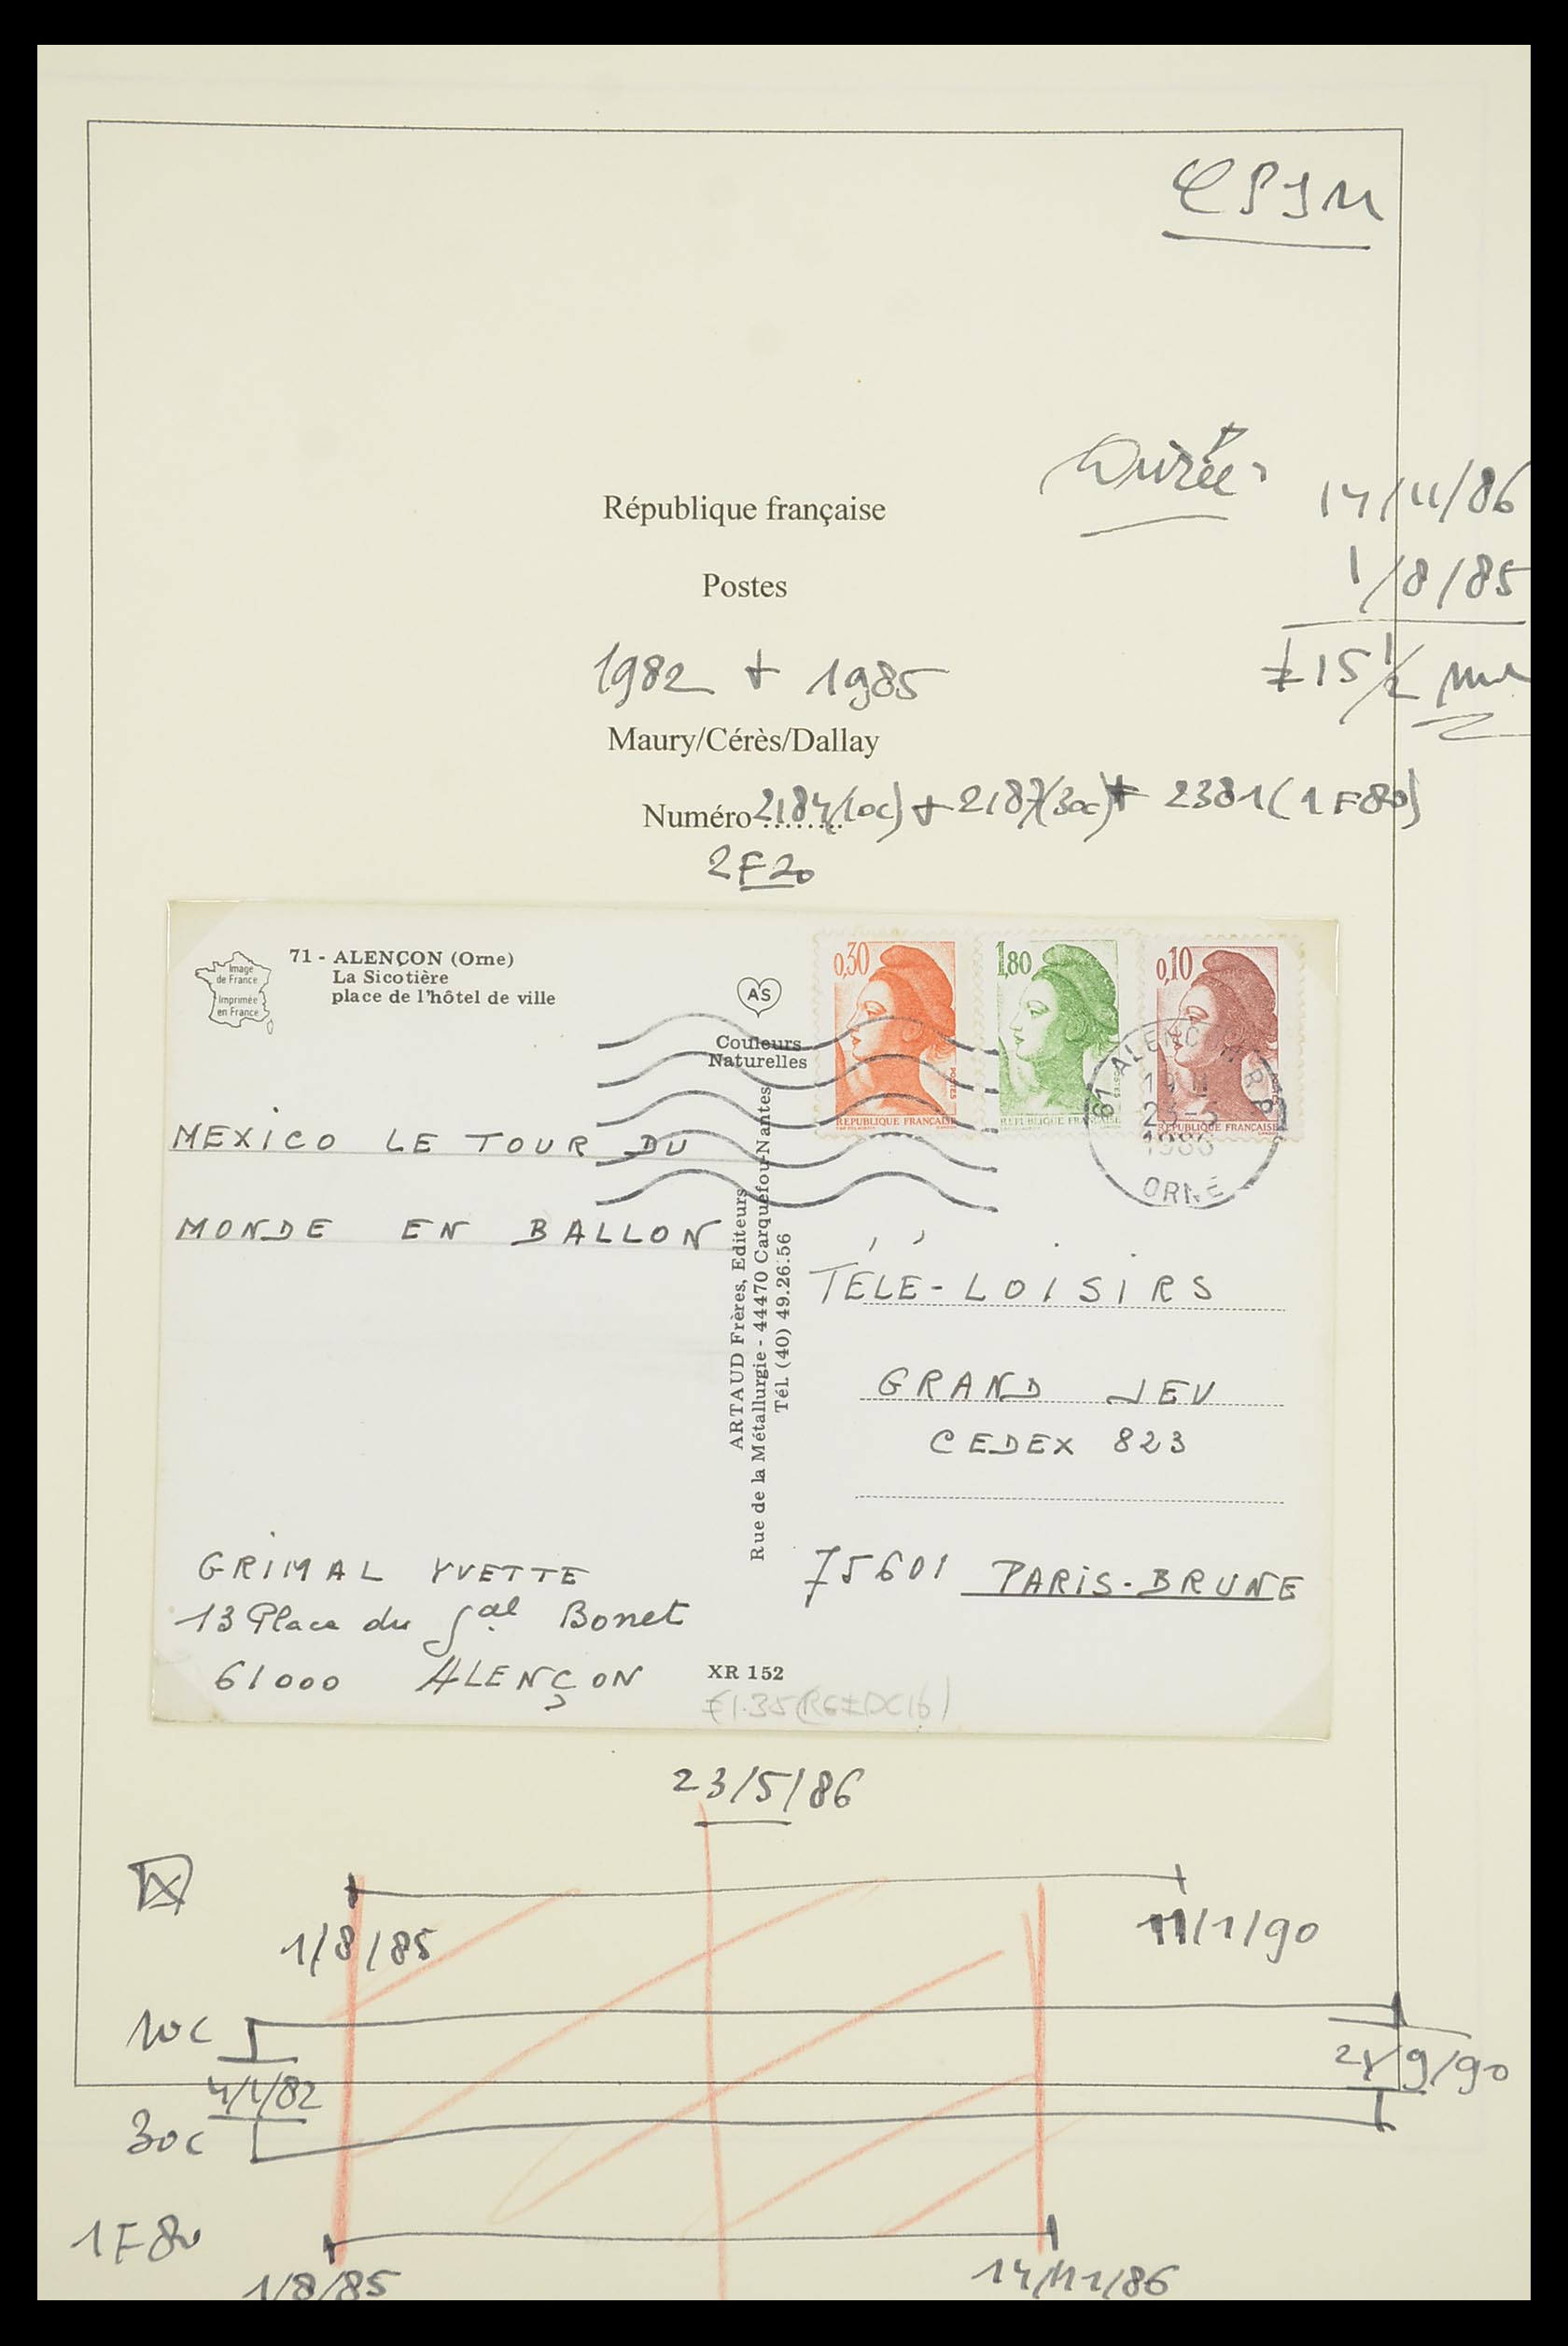 CPIM
Durée
14/11/86
République française
1/8/85
Postes
15 1/2
1982 + 1985
Maury/Cérès/Dallay
Numéro 2184(10c) + 2187(30c) + 2381(1F80)
2F20
Image
de France
Imprimée
en France
71 - ALENÇON (Orne)
La Sicotière
place de l'hôtel de ville
AS
Couleurs
Naturelles
0,30
POSTES
REPUBLIQUE FRANÇAISE
1,80
POSTES
REPUBLIQUE FRANÇAISE
0,10
REPUBLIQUE FRANÇAISE
61 ALENC R.P.
23-5
1986
ORNE
MEXICO LE TOUR DU
MONDE EN BALLON
ARTAUD Frères, Editeurs
Rue de la Métallurgie - 44470 Carquefou-Nantes
Tél. (40) 49.26.56
TÉLÉ-LOISIRS
GRAND JEU
CEDEX 823
75601 PARIS-BRUNE
GRIMAL YVETTE
13 Place du Gal Bonet
61000 ALENÇON
XR 152
23/5/86
1/8/85
11/1/90
10c
4/1/82
9/90
30c
1F80
1/8/85
14/11/86